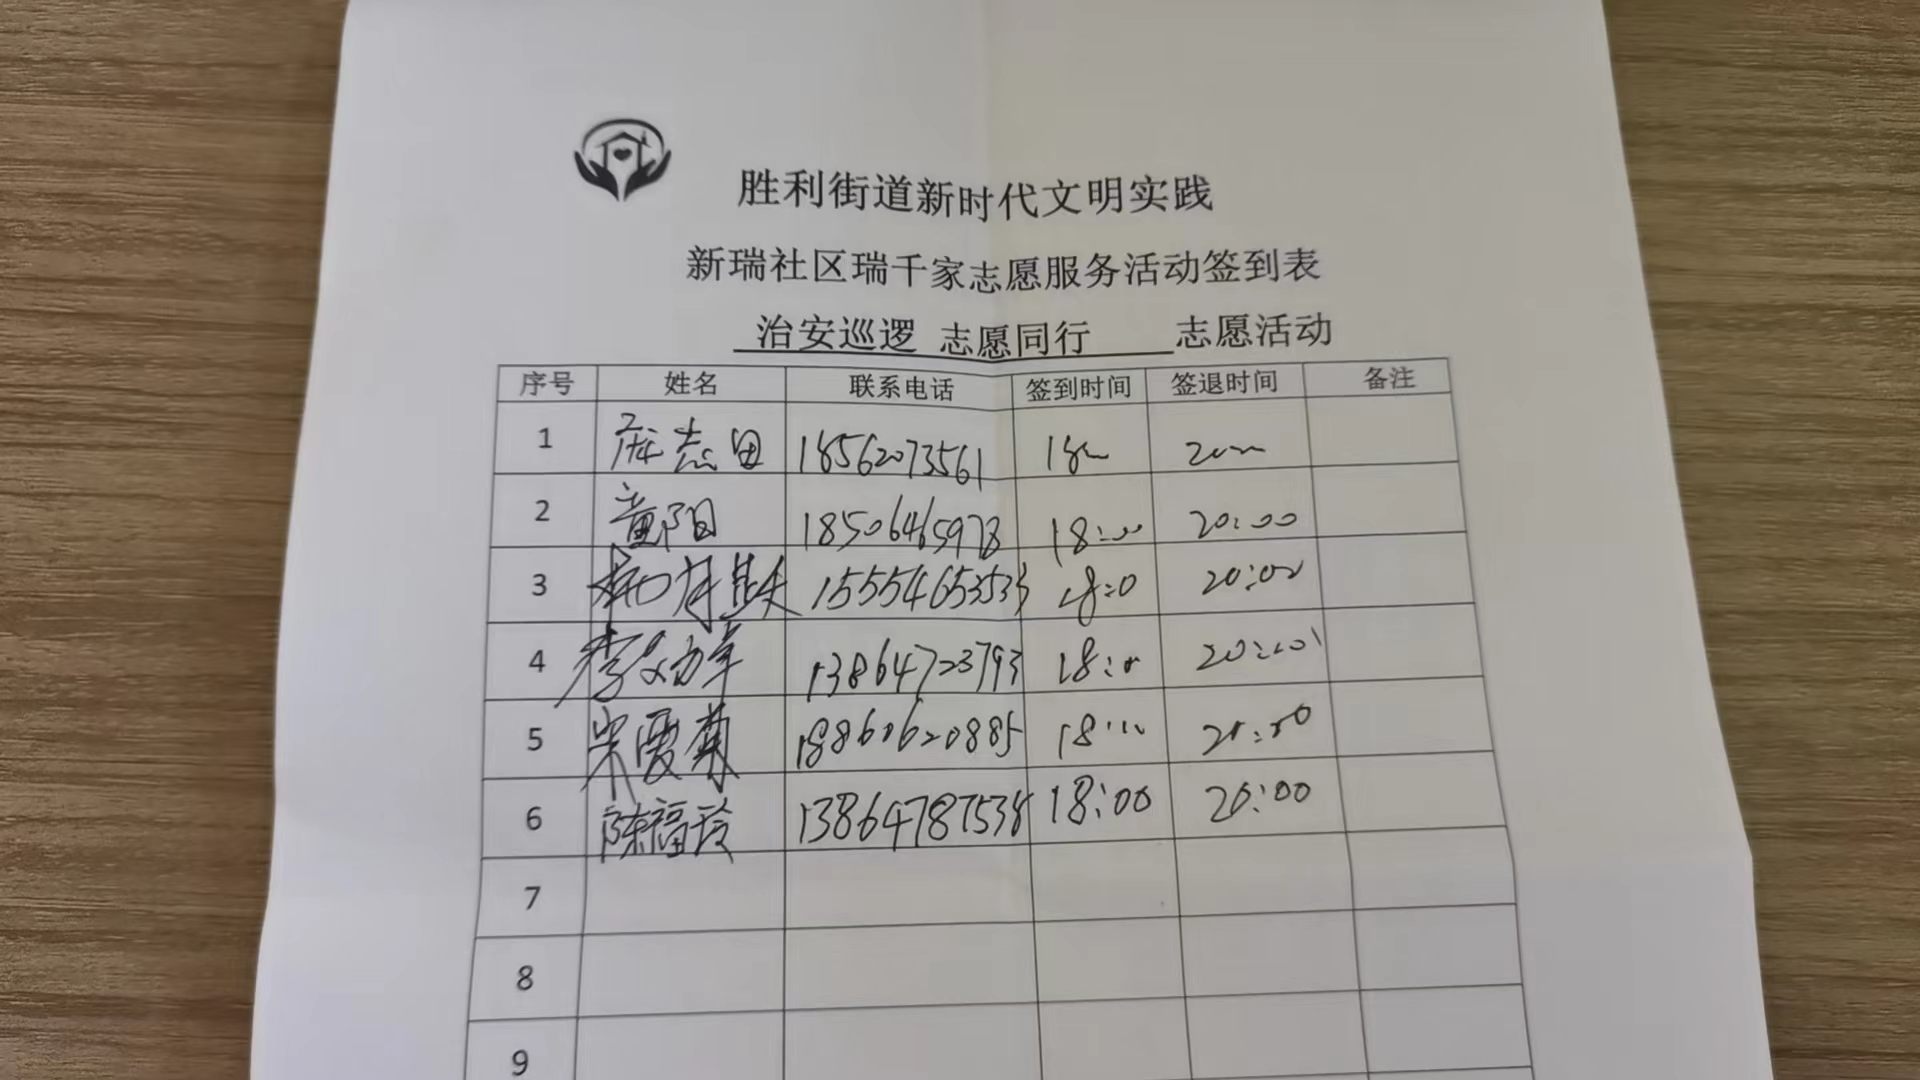 胜利街道新时代文明实践
新瑞社区瑞千家志愿服务活动签到表
治安巡逻 志愿同行 志愿活动
序号 姓名 联系电话 签到时间 签退时间 备注
1 庞志田 18562073561
2 童阳 18506465978 18:00 20:00
3 15554653533 18:0 20:00
4 李 13864723793 18:0
5 宋霞菊 18860620885
6 陈福玲 13864787538 18:00 20:00
7
8
9